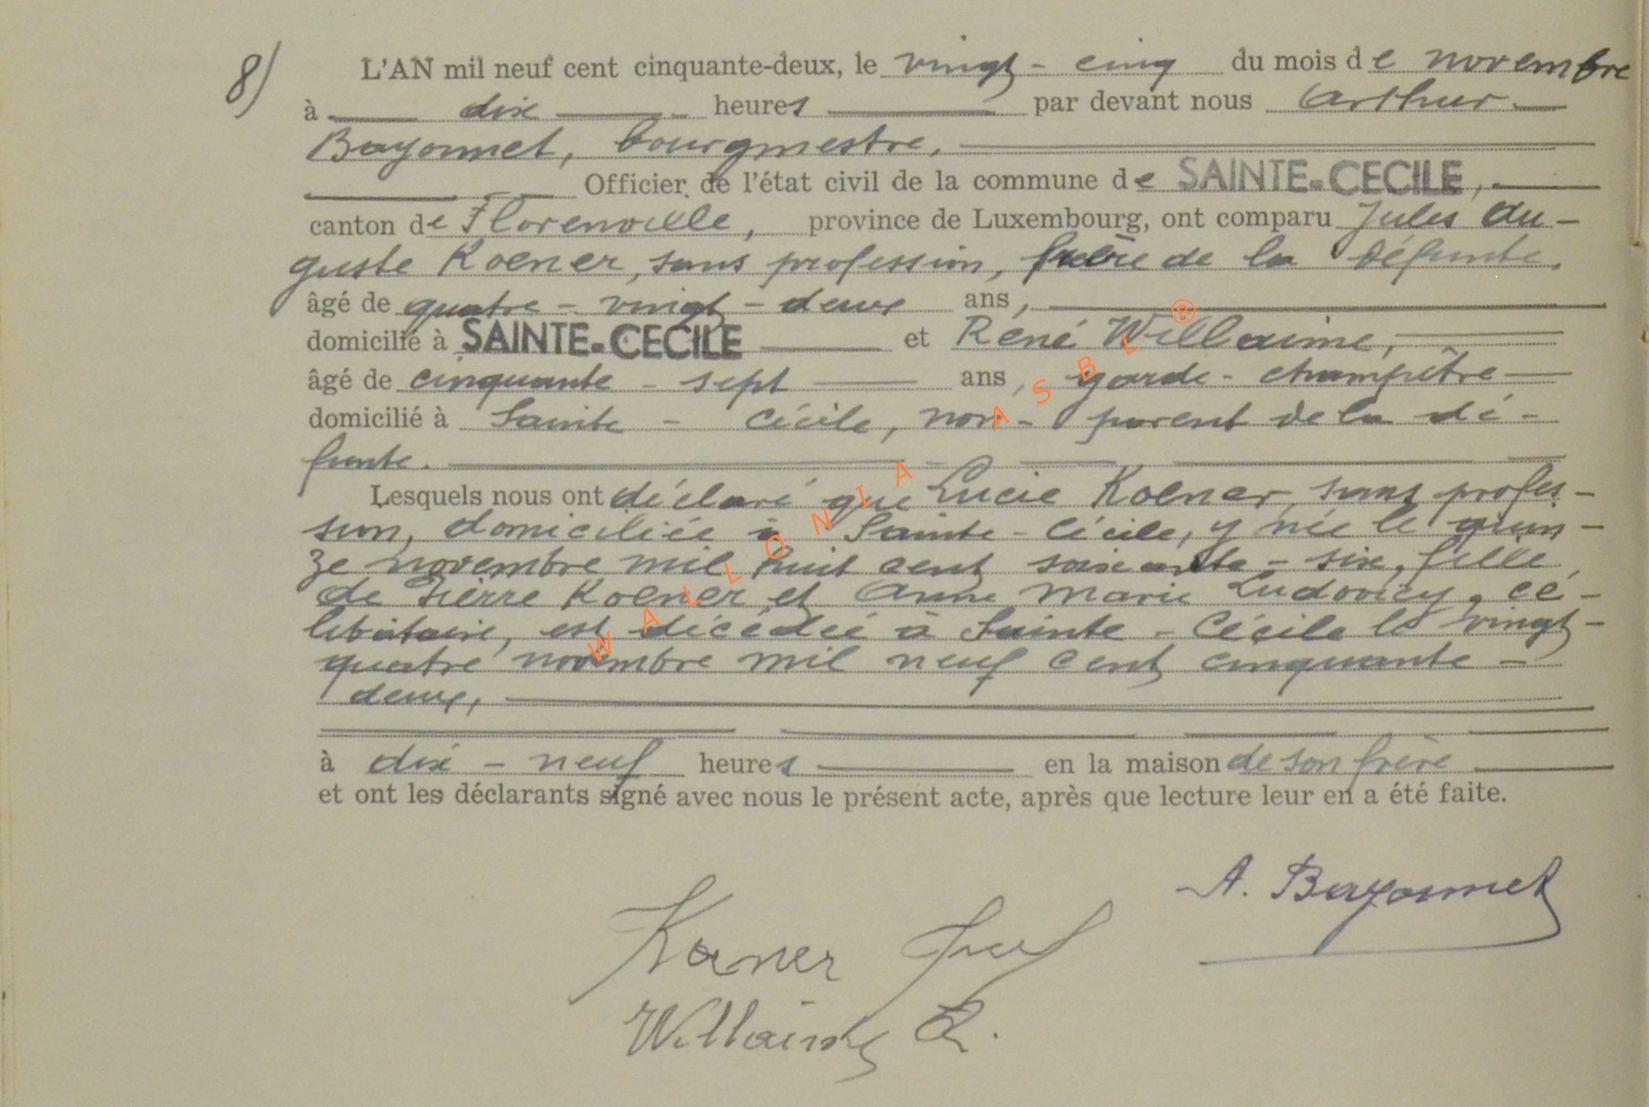 8) L'AN mil neuf cent cinquante-deux, le vingt-cinq du mois de novembre
à dix heures par devant nous Arthur
Bayonnet, bourgmestre,
Officier de l'état civil de la commune de SAINTE-CECILE,
canton de Florenville, province de Luxembourg, ont comparu Jules Au-
guste Koener, sans profession, frère de la défunte,
âgé de quatre-vingt-deux ans,
domicilié à SAINTE-CECILE et René Willaime,
âgé de cinquante-sept ans, garde-champêtre
domicilié à Sainte-Cécile, non-parent de la dé-
funte.
Lesquels nous ont déclaré que Lucie Koener, sans profes-
sion, domiciliée à Sainte-Cécile, y née le quin-
ze novembre mil huit cent soixante-six, fille
de Pierre Koener et Anne Marie Ludovicy, cé-
libataire, est décédée à Sainte-Cécile le vingt-
quatre novembre mil neuf cent cinquante-
deux,
à dix-neuf heures en la maison de son frère
et ont les déclarants signé avec nous le présent acte, après que lecture leur en a été faite.
A. Bayonnet
Koener
Willaime R.
WALLONIA ASBL ®